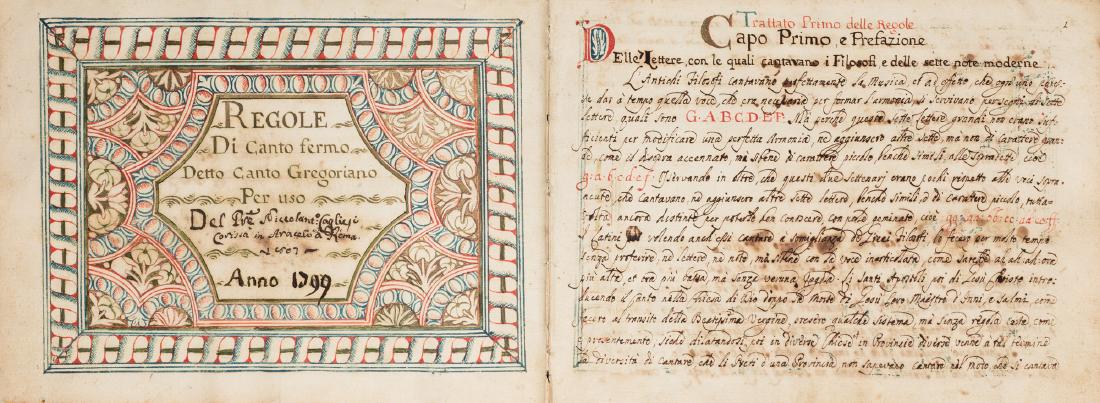 REGOLE
Di Canto fermo
Detto Canto Gregoriano
Per uso
Del Pre
in Araceli di Roma
1807
Anno 1799
1
Trattato Primo delle Regole
Capo Primo, e Prefazione
Delle Lettere, con le quali cantavano i Filosofi e delle sette note moderne
L'Antichi Filosofi cantavano perfettamente la Musica, et ad effetto, che ogn'uno
dar à tempo quella voce, che era necessaria per formar l'armonia, si servivano di sette
lettere quali sono G.A.B.C.D.E.F. Mà perche queste sette lettere grandi non erano suf
ficienti per modificare una perfetta Armonia, ne aggiunsero altre sette, ma non di Carattere gran
de come il di sopra accennato, mà bensì di carattere piccolo benche simili alle sopradette cioè
g.a.b.c.d.e.f. Osservando in oltre che questi due settenari erano pochi rispetto alle voci
che cantavano, ne aggiunsero altre sette lettere, benche simili di Carattere piccolo,
ancora distinte per poterle ben conoscere cioè
Latini volendo anch'essi cantare à somiglianza de Greci Filosofi, lo fecero per molto tempo
senza proferire ne lettere ne note mà bensì con la voce inarticolata, come sarebbe a, ad, ad, ora
più alta, et ora più bassa, mà senza veruna Li Santi Apostoli poi di Gesù Christo intro
ducendo il canto nella Chiesa di Dio doppo la Morte di Gesù loro Maestro d'Inni, e Salmi, come
fecero al transito della Beatissima Vergine, presero qualche sistema, mà senza regola certa come
presentemente, siche dilatandosi poi in diverse Chiese in Provincie diverse venne à tal termine
la diversità di Cantare che li Preti d'una Provincia non sapevano cantare nel modo, che si cantava